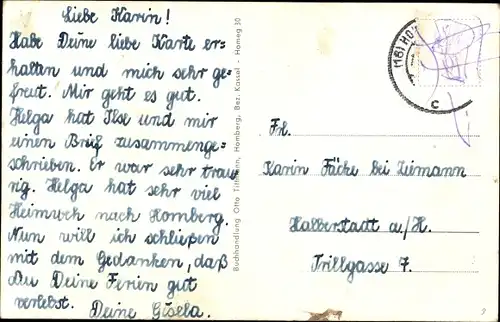 Liebe Karin!
Habe Deine liebe Karte er-
halten und mich sehr ge-
freut. Mir geht es gut.
Helga hat Ilse und mir
einen Brief zusammenge-
schrieben. Er war sehr trau-
rig. Helga hat sehr viel
Heimweh nach Homberg.
Nun will ich schließen
mit dem Gedanken, daß
Du Deine Ferien gut
verlebst. Deine Gisela.
Buchhandlung Otto Bez. Kassel - Homeg 30
(16) HO
c
Frl.
Karin Fäcke bei Zeimann
Halberstadt a/H.
Trillgasse 7.